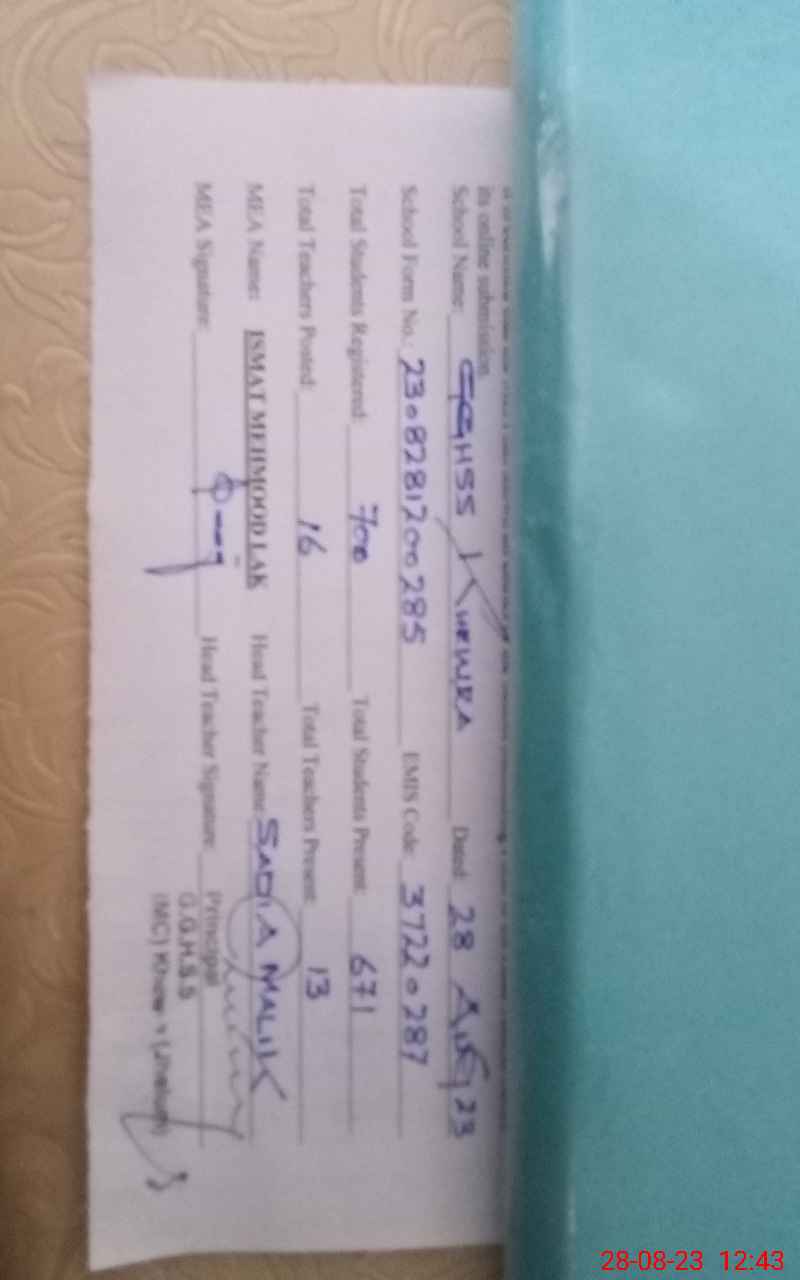 its online submission.
School Name: GGHSS KHEWRA Dated: 28 Aug 23
School Form No.: 2308281200285 EMIS Code: 37220287
Total Students Registered: 700 Total Students Present: 671
Total Teachers Posted: 16 Total Teachers Present: 13
MEA Name: ISMAT MEHMOOD LAK Head Teacher Name: SADIA MALIK
MEA Signature: Head Teacher Signature:
Principal
G.G.H.S.S
(MC) Khewra (Jhelum)
28-08-23 12:43